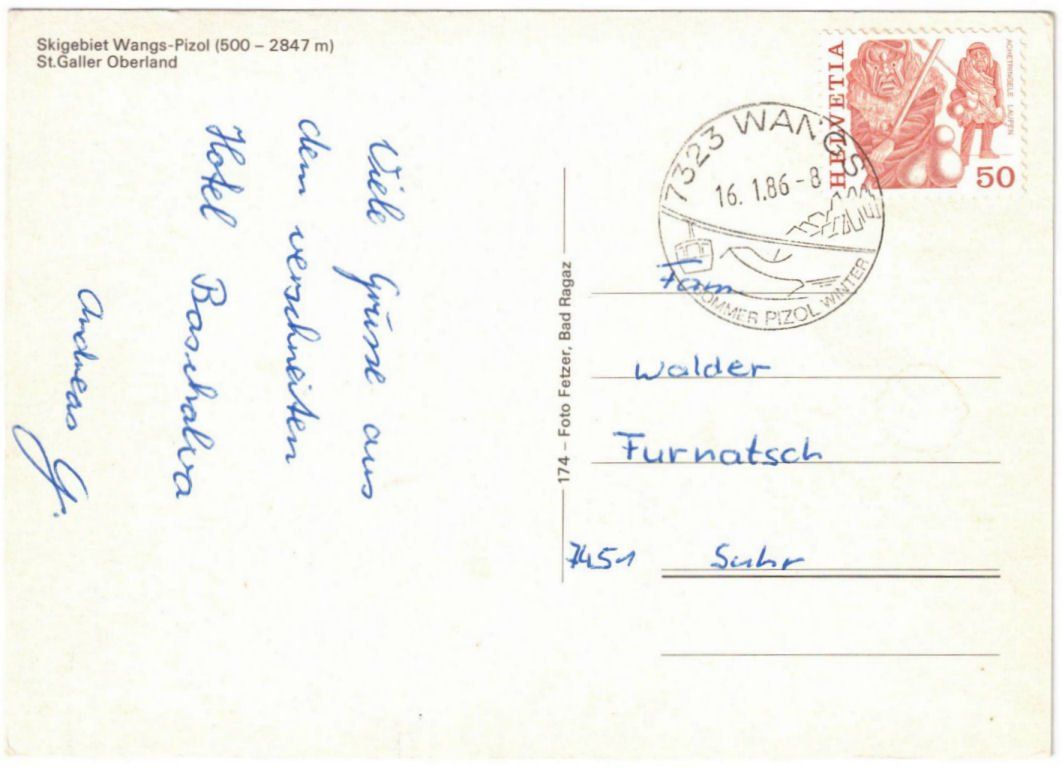 Skigebiet Wangs-Pizol (500 – 2847 m)
St.Galler Oberland
Viele Grüsse aus
dem verschneiten
Hotel Baschalva
Andreas G.
174 – Foto Fetzer, Bad Ragaz
HELVETIA
ACHETRINGELE LAUPEN
50
7323 WANGS
16.1.86-8
SOMMER PIZOL WINTER
Fam
Walder
Furnatsch
7451 Suhr